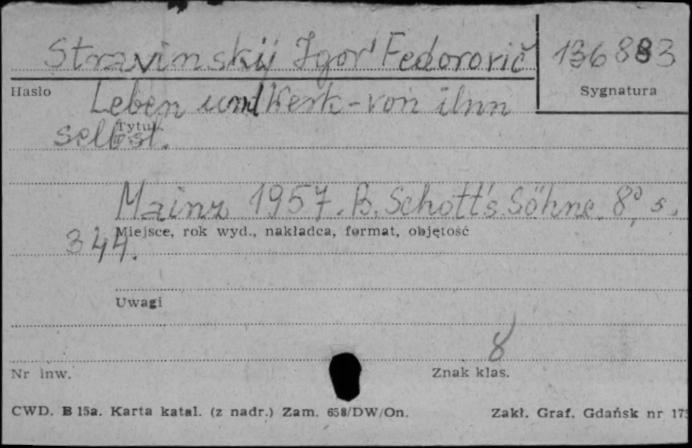 Stravinskij Igor' Fedorovič 136883
Hasło Sygnatura
Leben und Werk - von ihm
Tytuł
selbst.
Mainz 1957. B. Schott's Söhne. 8°, s.
Miejsce, rok wyd., nakładca, format, objętość
344.
Uwagi
8
Nr inw. Znak klas.
CWD. B 15a. Karta katal. (z nadr.) Zam. 658/DW/On. Zakł. Graf. Gdańsk nr